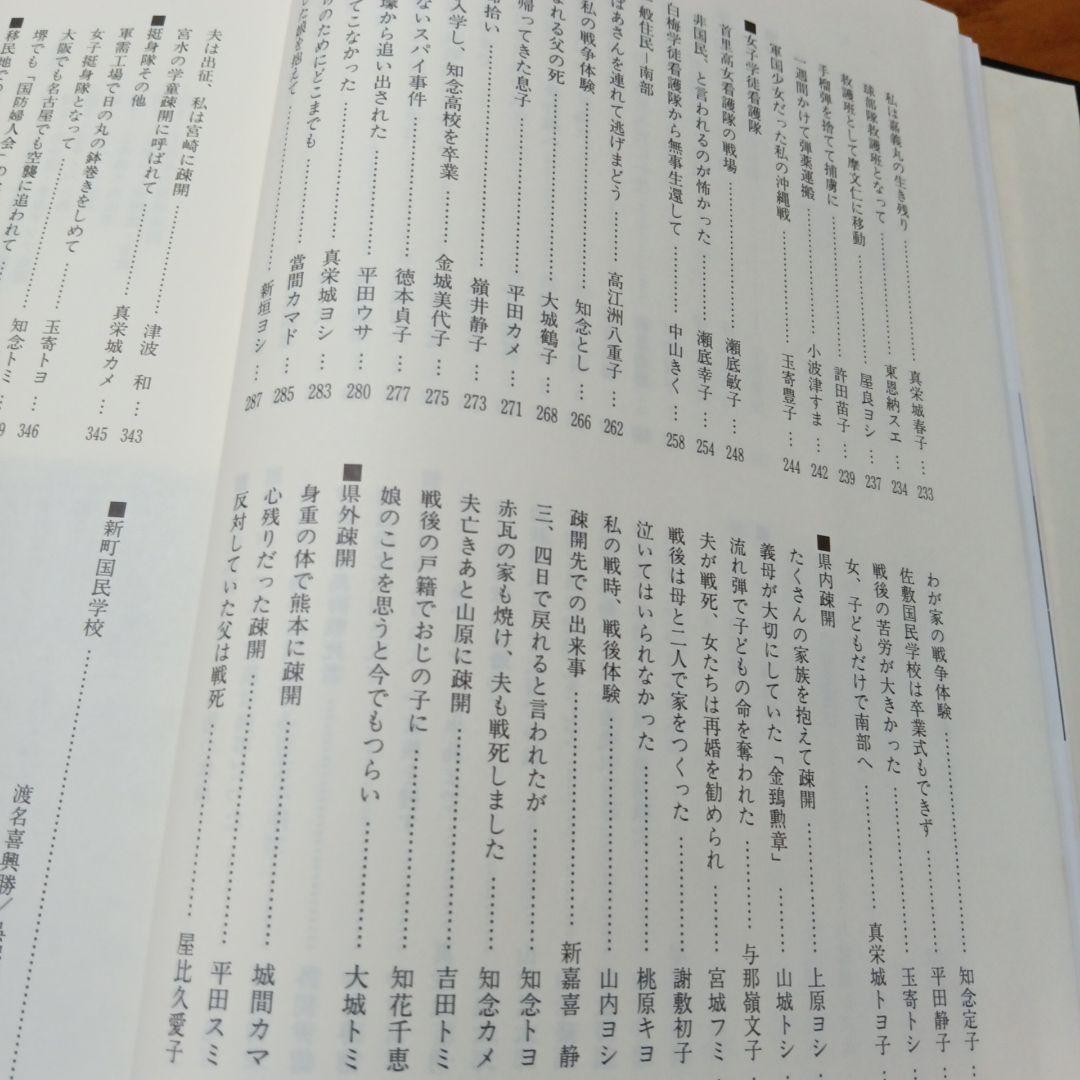 私は嘉義丸の生き残り……真栄城春子…233
球部隊救護班となって……東恩納スエ…234
救護班として摩文仁に移動……屋良ヨシ…237
手榴弾を捨てて捕虜に……許田苗子…239
一週間かけて弾薬運搬……小波津すま…242
軍国少女だった私の沖縄戦……玉寄豊子…244
■女子学徒看護隊
首里高女看護隊の戦場……瀬底敏子…248
非国民、と言われるのが怖かった……瀬底幸子…254
白梅学徒看護隊から無事生還して……中山きく…258
一般住民―南部
ばあさんを連れて逃げまどう……高江洲八重子…262
私の戦争体験……知念とし…266
まれる父の死……大城鶴子…268
帰ってきた息子……平田カメ…271
拾い……嶺井静子…273
入学し、知念高校を卒業……金城美代子…275
ないスパイ事件……徳本貞子…277
壕から追い出された……平田ウサ…280
てこなかった……真栄城ヨシ…283
のためにどこまでも……當間カマド…285
娘を抱えて……新垣ヨシ…287
わが家の戦争体験……知念定子…
佐敷国民学校は卒業式もできず……平田静子…
戦後の苦労が大きかった……玉寄トシ…
女、子どもだけで南部へ……真栄城トヨ子
■県内疎開
たくさんの家族を抱えて疎開……上原ヨシ…
義母が大切にしていた「金鵄勲章」……山城トシ…
流れ弾で子どもの命を奪われた……与那嶺文子…
夫が戦死、女たちは再婚を勧められ……宮城フミ
戦後は母と二人で家をつくった……謝敷初子
泣いてはいられなかった……桃原キヨ
私の戦時、戦後体験……山内ヨシ
疎開先での出来事……新嘉喜 静
三、四日で戻れると言われたが……知念トヨ
赤瓦の家も焼け、夫も戦死しました……知念カメ
夫亡きあと山原に疎開……吉田トミ
戦後の戸籍でおじの子に……知花千恵
娘のことを思うと今でもつらい……大城トミ
■県外疎開
身重の体で熊本に疎開……城間カマ
心残りだった疎開……平田スミ
反対していた父は戦死……屋比久愛子
夫は出征、私は宮崎に疎開……津波 和…343
宮水の学童疎開に呼ばれて……真栄城カメ…345
■挺身隊その他
軍需工場で日の丸の鉢巻きをしめて
女子挺身隊となって……玉寄トヨ…346
大阪でも名古屋でも空襲に追われて……知念トミ…
堺でも「国防婦人会」の
■移民地で
■新町国民学校……渡名喜興勝／